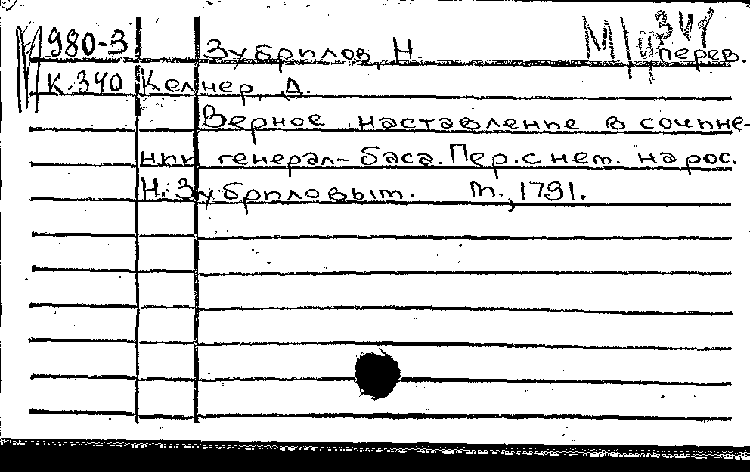 980-3 Зубрилов, Н. перев.
К-340 Келнер, Д.
Верное наставление в сочине-
нии генерал-баса. Пер. с нем. на рос.
Н. Зубриловым. М., 1791.